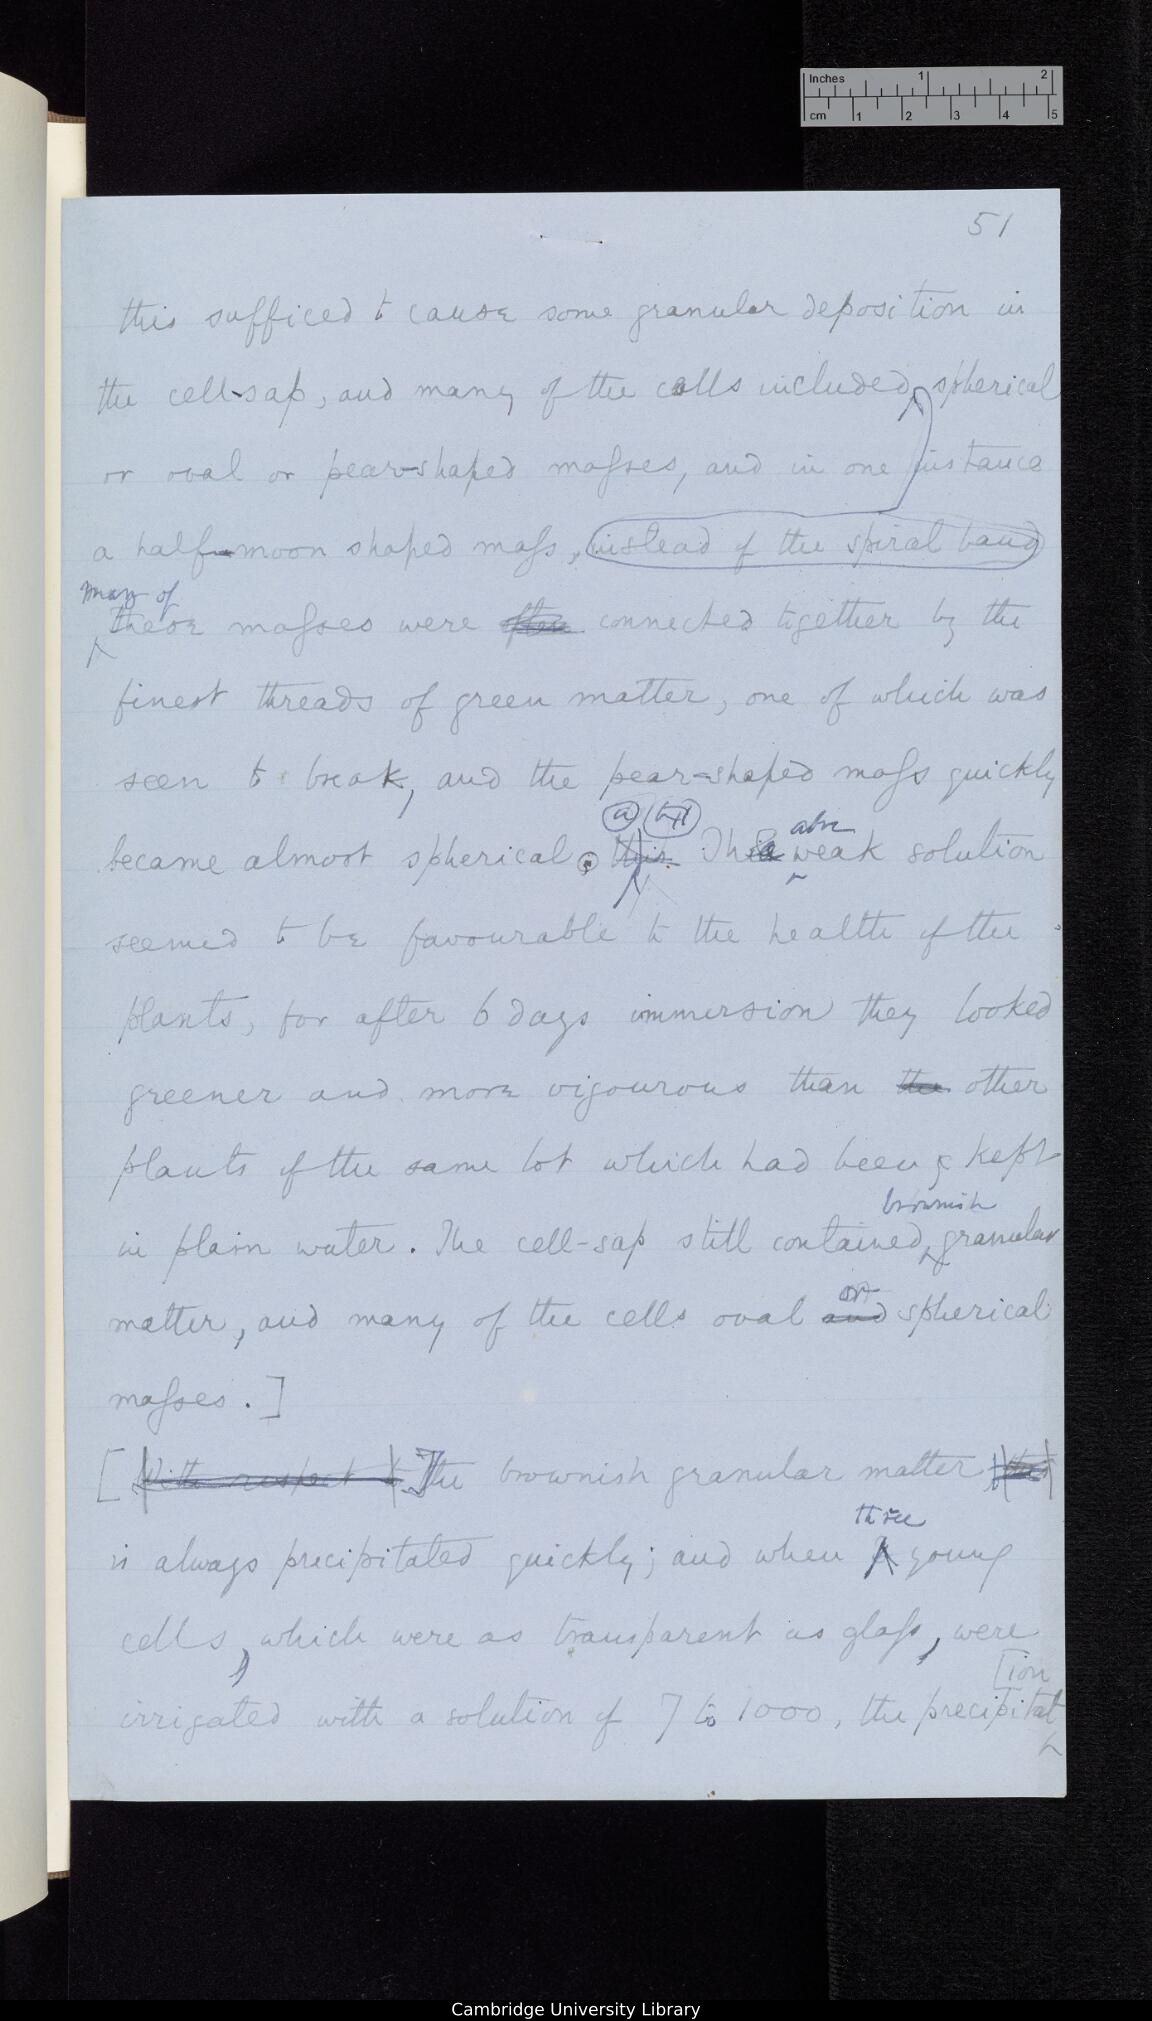 Inches 1 2
cm 1 2 3 4 5
51
this sufficed to cause some granular deposition in
the cell-sap, and many of the cells included spherical
or oval or pear-shaped masses, and in one instance
a half-moon shaped mass, instead of the spiral band
many of
these masses were often connected together by the
finest threads of green matter, one of which was
seen to break, and the pear-shaped mass quickly
(a)
above
became almost spherical. this. The weak solution
seemed to be favourable to the health of the
plants, for after 6 days immersion they looked
greener and more vigourous than the other
plants of the same lot which had been kept
brownish
in plain water. The cell-sap still contained granular
or
matter, and many of the cells oval and spherical
masses.]
[With respect to The brownish granular matter this
three
is always precipitated quickly; and when young
cells, which were as transparent as glass, were
tion
irrigated with a solution of 7 to 1000, the precipitat
Cambridge University Library